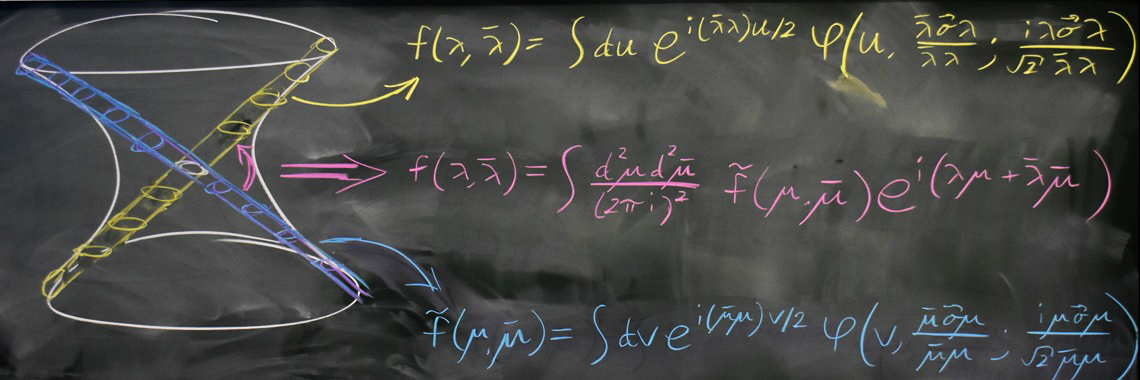 f(λ, λ̄) = ∫ du e^{i(λ̄λ)u/2} φ(u, \frac{λ̄σ⃗λ}{λ̄λ}; \frac{iλσ⃗λ}{√2 λ̄λ})
f(λ, λ̄) = ∫ \frac{d²μ d²μ̄}{(2πi)²} f̃(μ, μ̄) e^{i(λμ + λ̄μ̄)}
f̃(μ, μ̄) = ∫ dv e^{i(μ̄μ)v/2} φ(v, \frac{μ̄σ⃗μ}{μ̄μ}; \frac{iμσ⃗μ}{√2 μ̄μ})